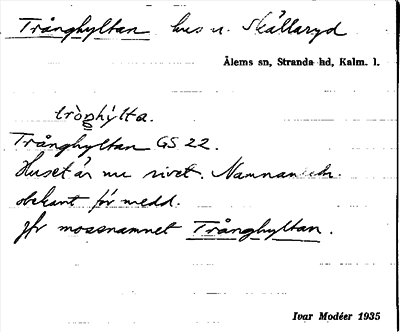 Trånghyltan hus u. Skällaryd
Ålems sn, Stranda hd, Kalm. l.
Trånghyltan GS 22.
Huset är nu rivet. Namnan
obekant för medd.
Jfr mossnamnet Trånghyltan.
Ivar Modéer 1935